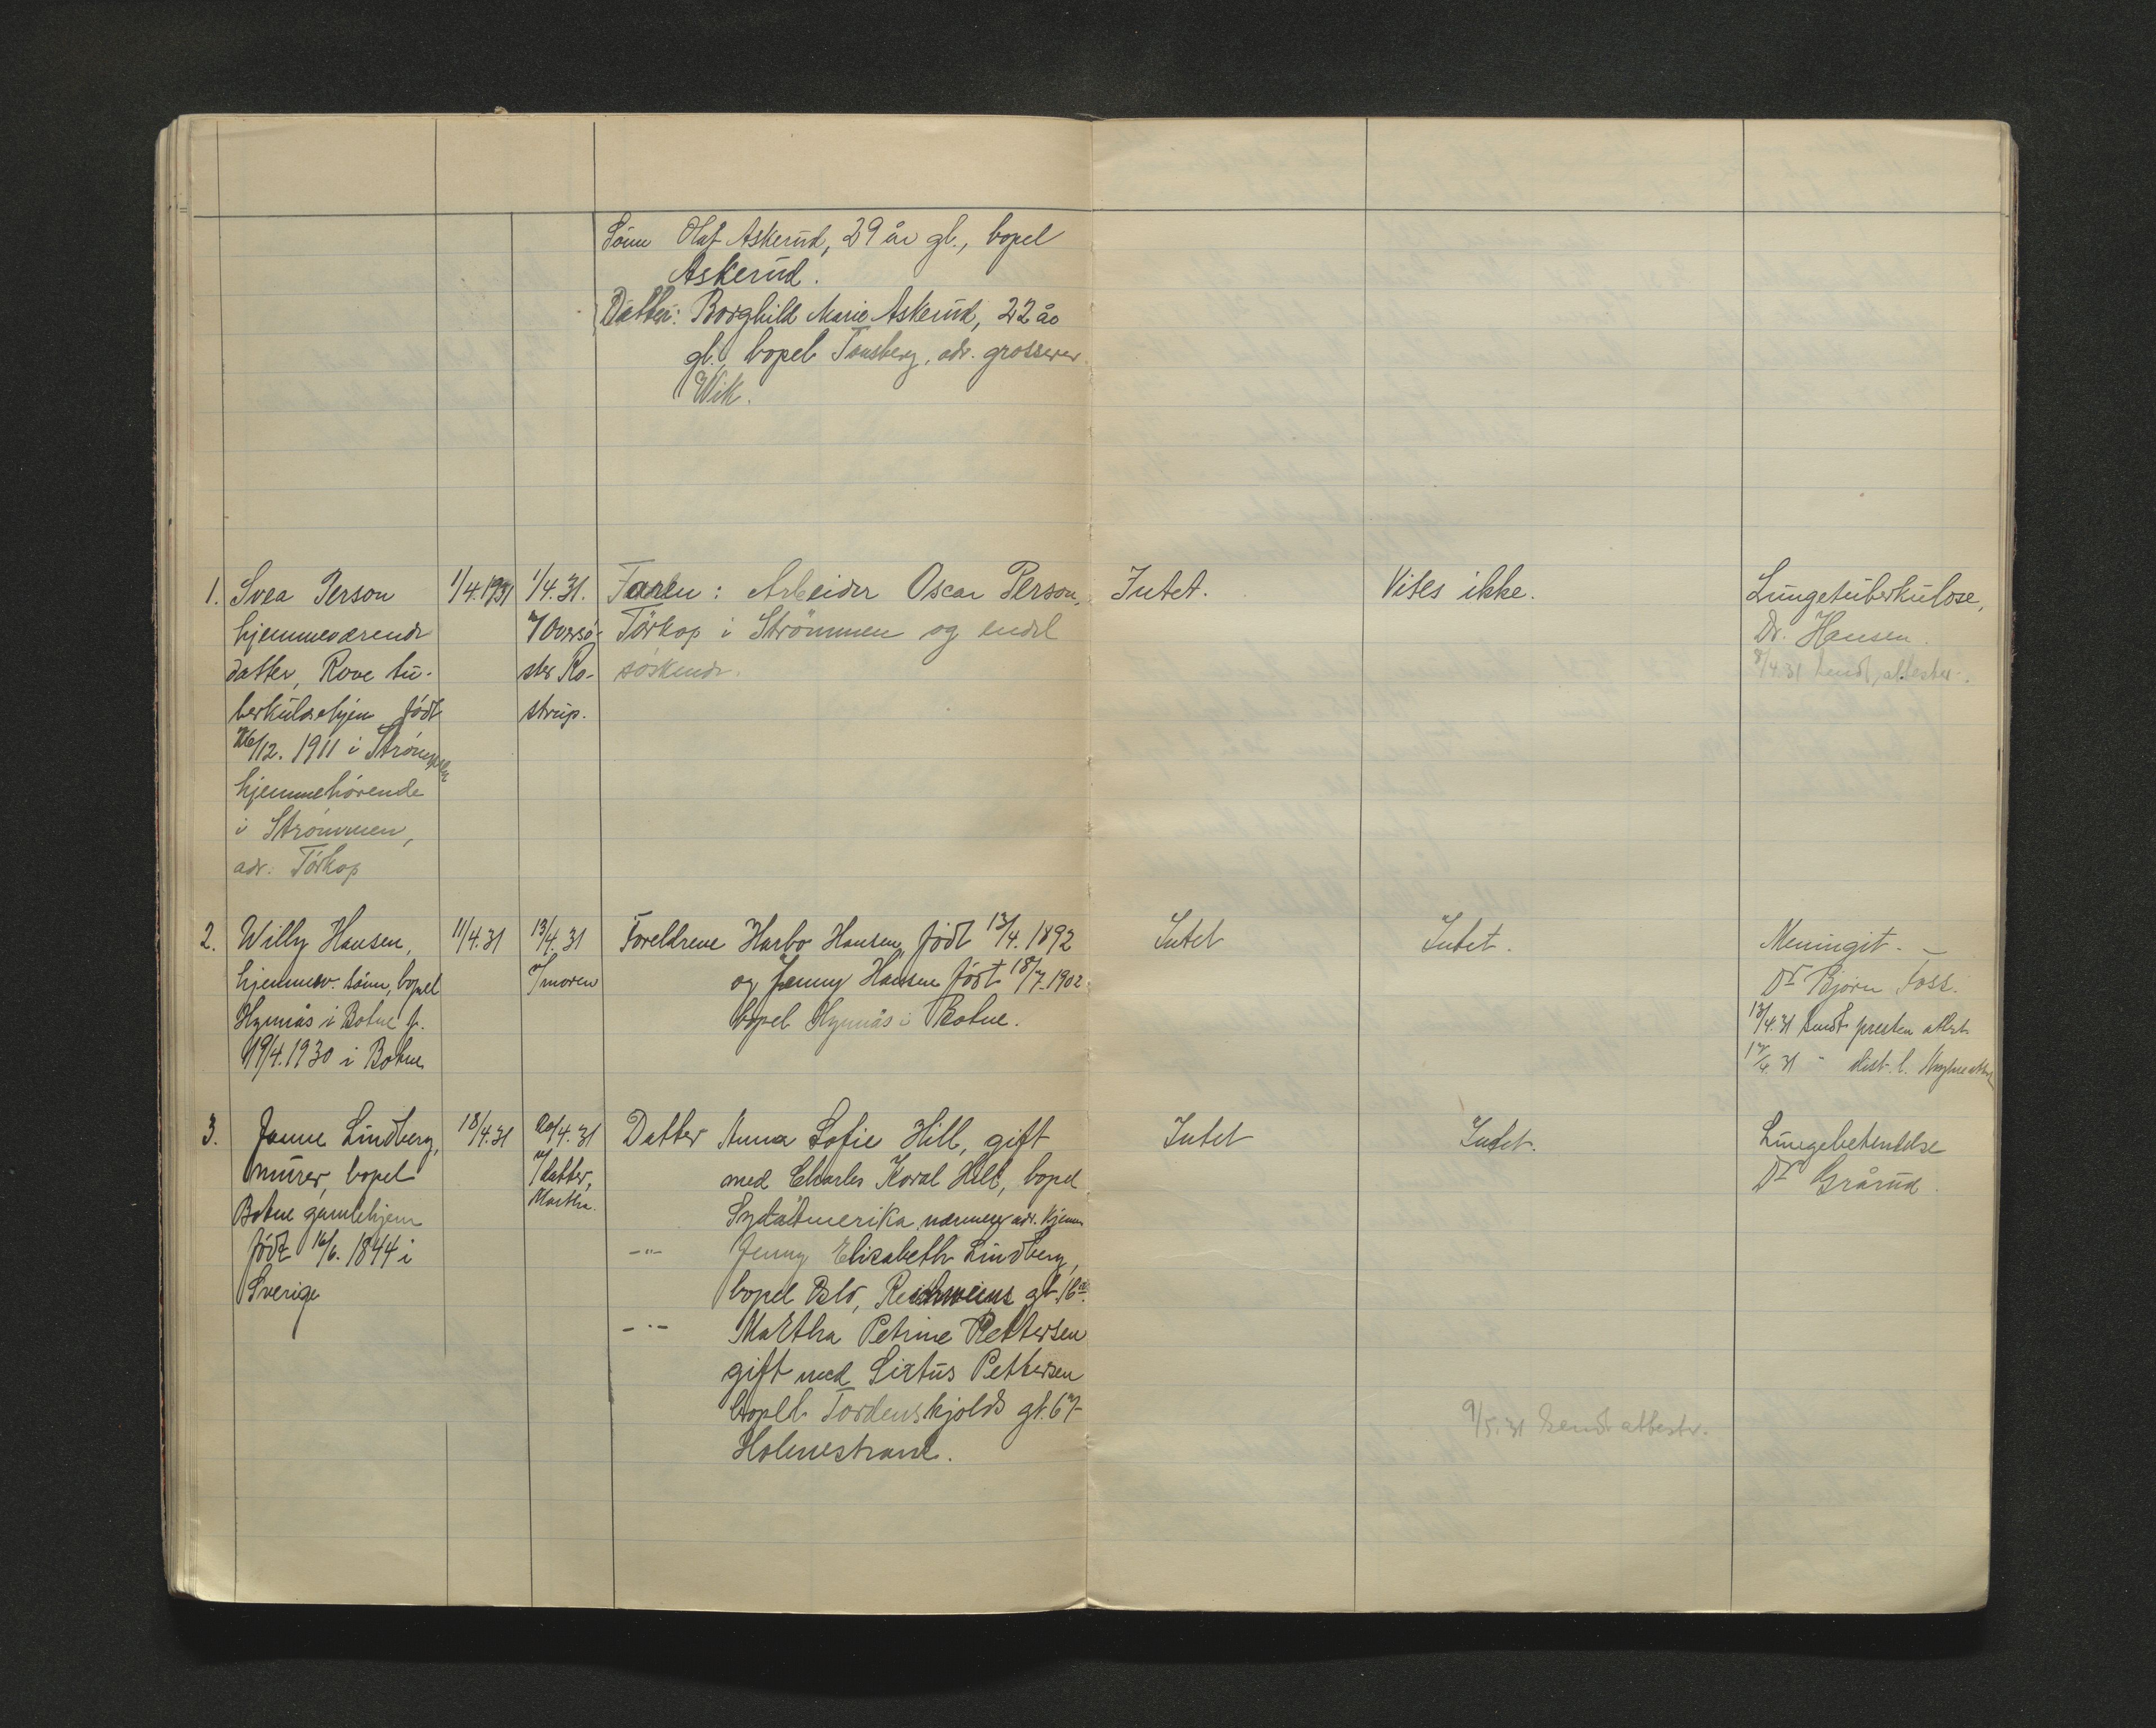 Sönn Olaf Askerud, 29 år gl., bopel
Askerud.
Datter: Borghild Marie Askerud, 22 år
gl., bopel Tønsberg, adr. grosserer
Wik.
1. Svea Person
hjemmeværende
datter, Rove tu-
berkulosehjem født
26/12. 1911 i Strömmen
hjemmehörende
i Strömmen,
adr: Törkop
1/4.1931
1/4.31.
v/Oversö-
ster Ro-
strup.
Faren: Arbeider Oscar Person,
Törkop i Strömmen og endel
söskende.
Intet.
Vites ikke.
Lungetuberkulose,
Dr. Hansen.
8/4.31 sendt attester.
2. Willy Hansen,
hjemmev. sönn, bopel
i Botne f.
19/4.1930 i Botne
11/4.31
13/4.31
v/moren
Foreldrene Harbo Hansen, født 13/4. 1892
og Jenny Hansen født 18/7.1902
bopel i Botne.
Intet
Intet.
Meningit. -
Dr Bjørn Foss.
13/4.31 sendt presten attest
17/4.31 " dist. l.
3. Janne Lindberg,
murer, bopel
Botne gamlehjem
født 16/6. 1844 i
Sverige
18/4.31
20/4.31
v/datter,
Martha.
Datter Anna Sofie Hill, gift
med Charles Hill, bopel
Sydamerika, nærmere adr. kjennes
-"- Jenny Elisabeth Lindberg,
bopel Oslo, Reichweins gt. 16
-"- Martha Petrine Pettersen
gift med Sixtus Pettersen
bopel Tordenskjolds gt. 67
Holmestrand.
Intet
Intet.
Lungebetendelse
Dr Grårud.
9/5.31 sendt attester.